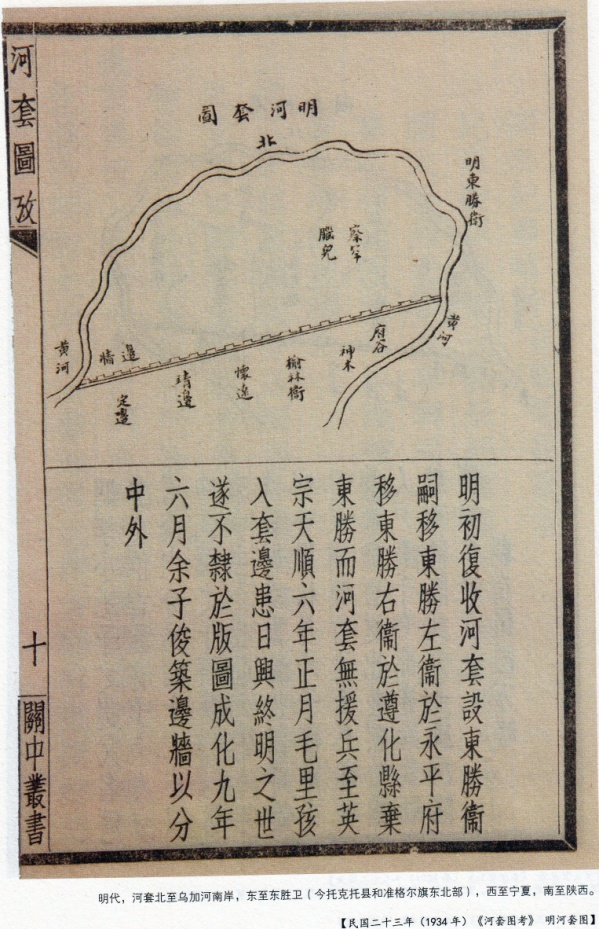 河套圖攷
明河套圖
北
明東勝衛
察罕
腦兒
黄河
府谷
神木
榆林衛
懷遠
靖邊
定邊
邊牆
黄河
明初復收河套設東勝衞
嗣移東勝左衞於永平府
移東勝右衞於遵化縣棄
東勝而河套無援兵至英
宗天順六年正月毛里孩
入套邊患日興終明之世
遂不隸於版圖成化九年
六月余子俊築邊牆以分
中外
十
關中叢書
明代，河套北至乌加河南岸，东至东胜卫（今托克托县和准格尔旗东北部），西至宁夏，南至陕西。
【民国二十三年（1934年）《河套图考》 明河套图】